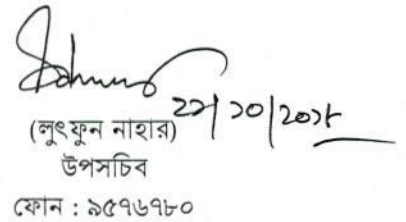 ২২/১০/২০১৮
(লুৎফুন নাহার)
উপসচিব
ফোন : ৯৫৭৬৭৮০